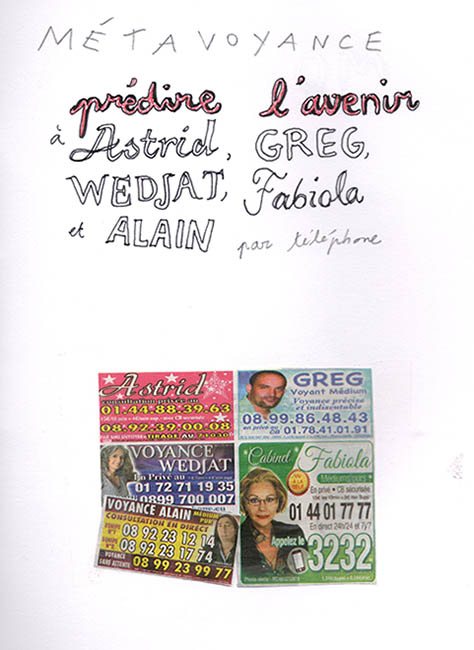 MÉTAVOYANCE
prédire l'avenir
à Astrid, GREG,
WEDJAT, Fabiola
et ALAIN par téléphone
Astrid
consultation privée au
01.44.88.39.63
08.92.39.00.08
TIRAGE AU 71030
GREG
Voyant Médium
Voyance précise
et indiscutable
08.99.86.48.43
en privé au
OU 01.78.41.01.91
VOYANCE
WEDJAT
En Privé au
01 72 71 19 35
0899 700 007
VOYANCE ALAIN MEDIUM PUR
CONSULTATION EN DIRECT
08 92 23 12 14
08 92 23 17 74
VOYANCE SANS ATTENTE 08 99 23 99 77
Cabinet Fabiola
Médiums purs
En privé • CB sécurisée
01 44 01 77 77
En direct 24h/24 et 7j/7
Appelez le
3232